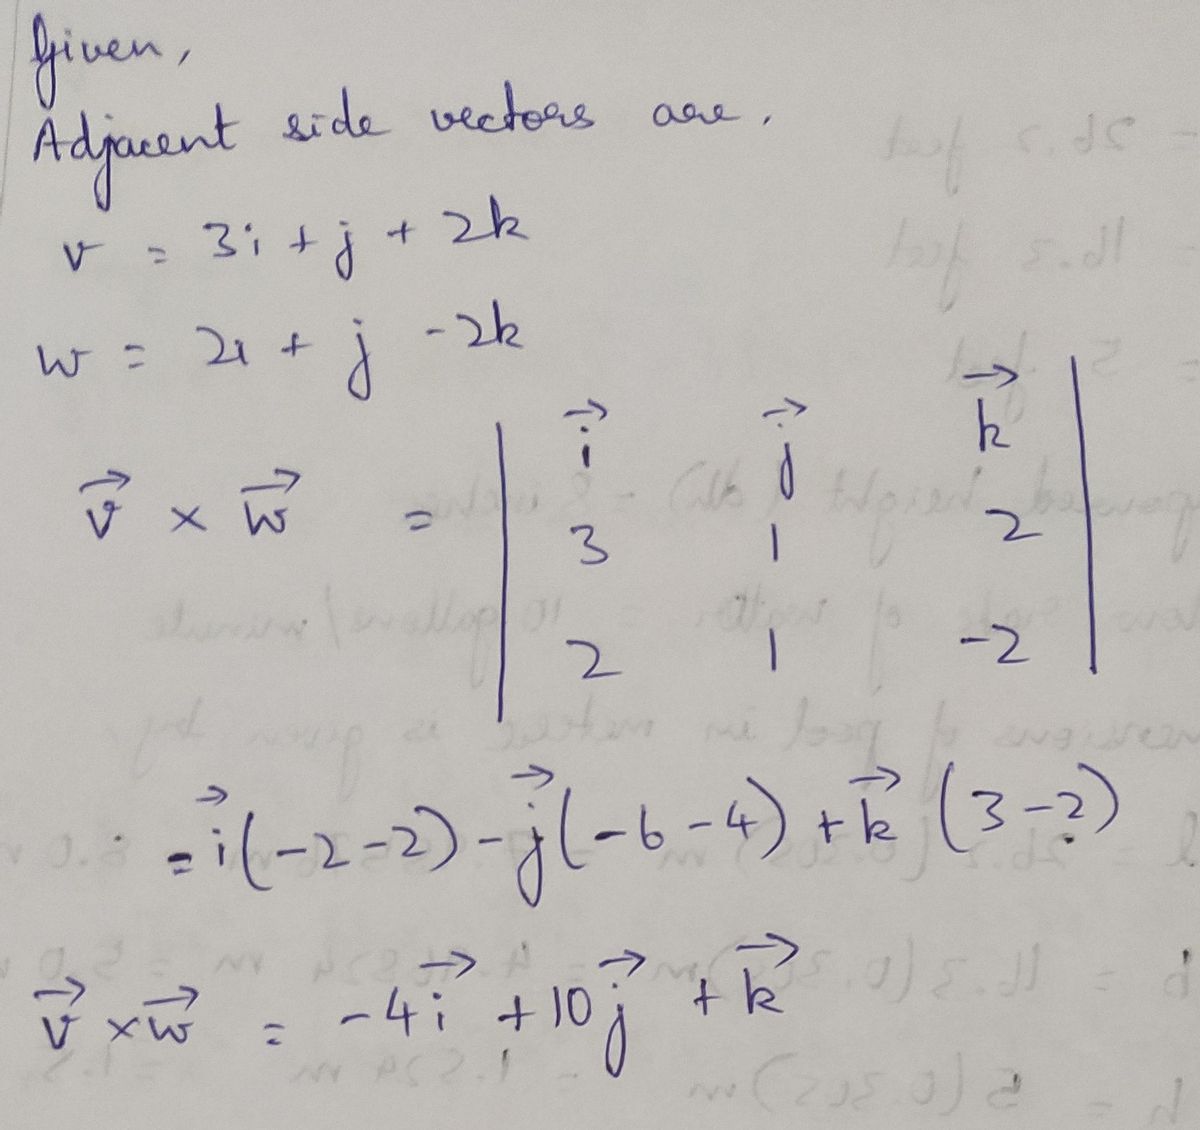 Given,
Adjacent side vectors are.
v = 3i + j + 2k
w = 2i + j - 2k
v⃗ × w⃗ = | i⃗ j⃗ k⃗ |
3 1 2
2 1 -2
= i⃗(-2-2) - j⃗(-6-4) + k⃗(3-2)
v⃗ × w⃗ = -4i⃗ + 10j⃗ + k⃗